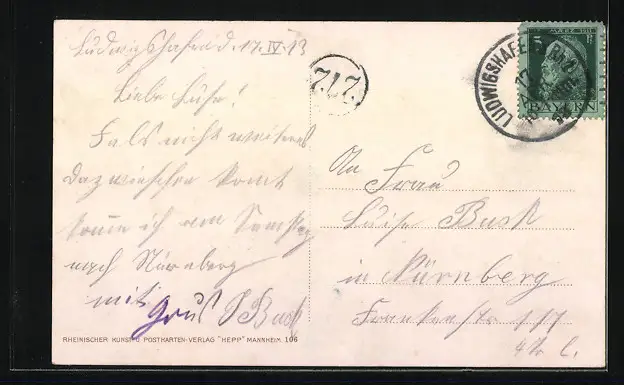 Ludwigshafen d. 17.IV.13
Liebe Luise!
Fals nicht weiteres
dazwischen komt
komme ich am Samstag
nach Nürnberg
mit Gruß J Busch
RHEINISCHER KUNST- POSTKARTEN-VERLAG "HEPP" MANNHEIM. 106
LUDWIGSHAFEN
5
BAYERN
An Frau
Luise Busch
in Nürnberg
Frankenstr 117